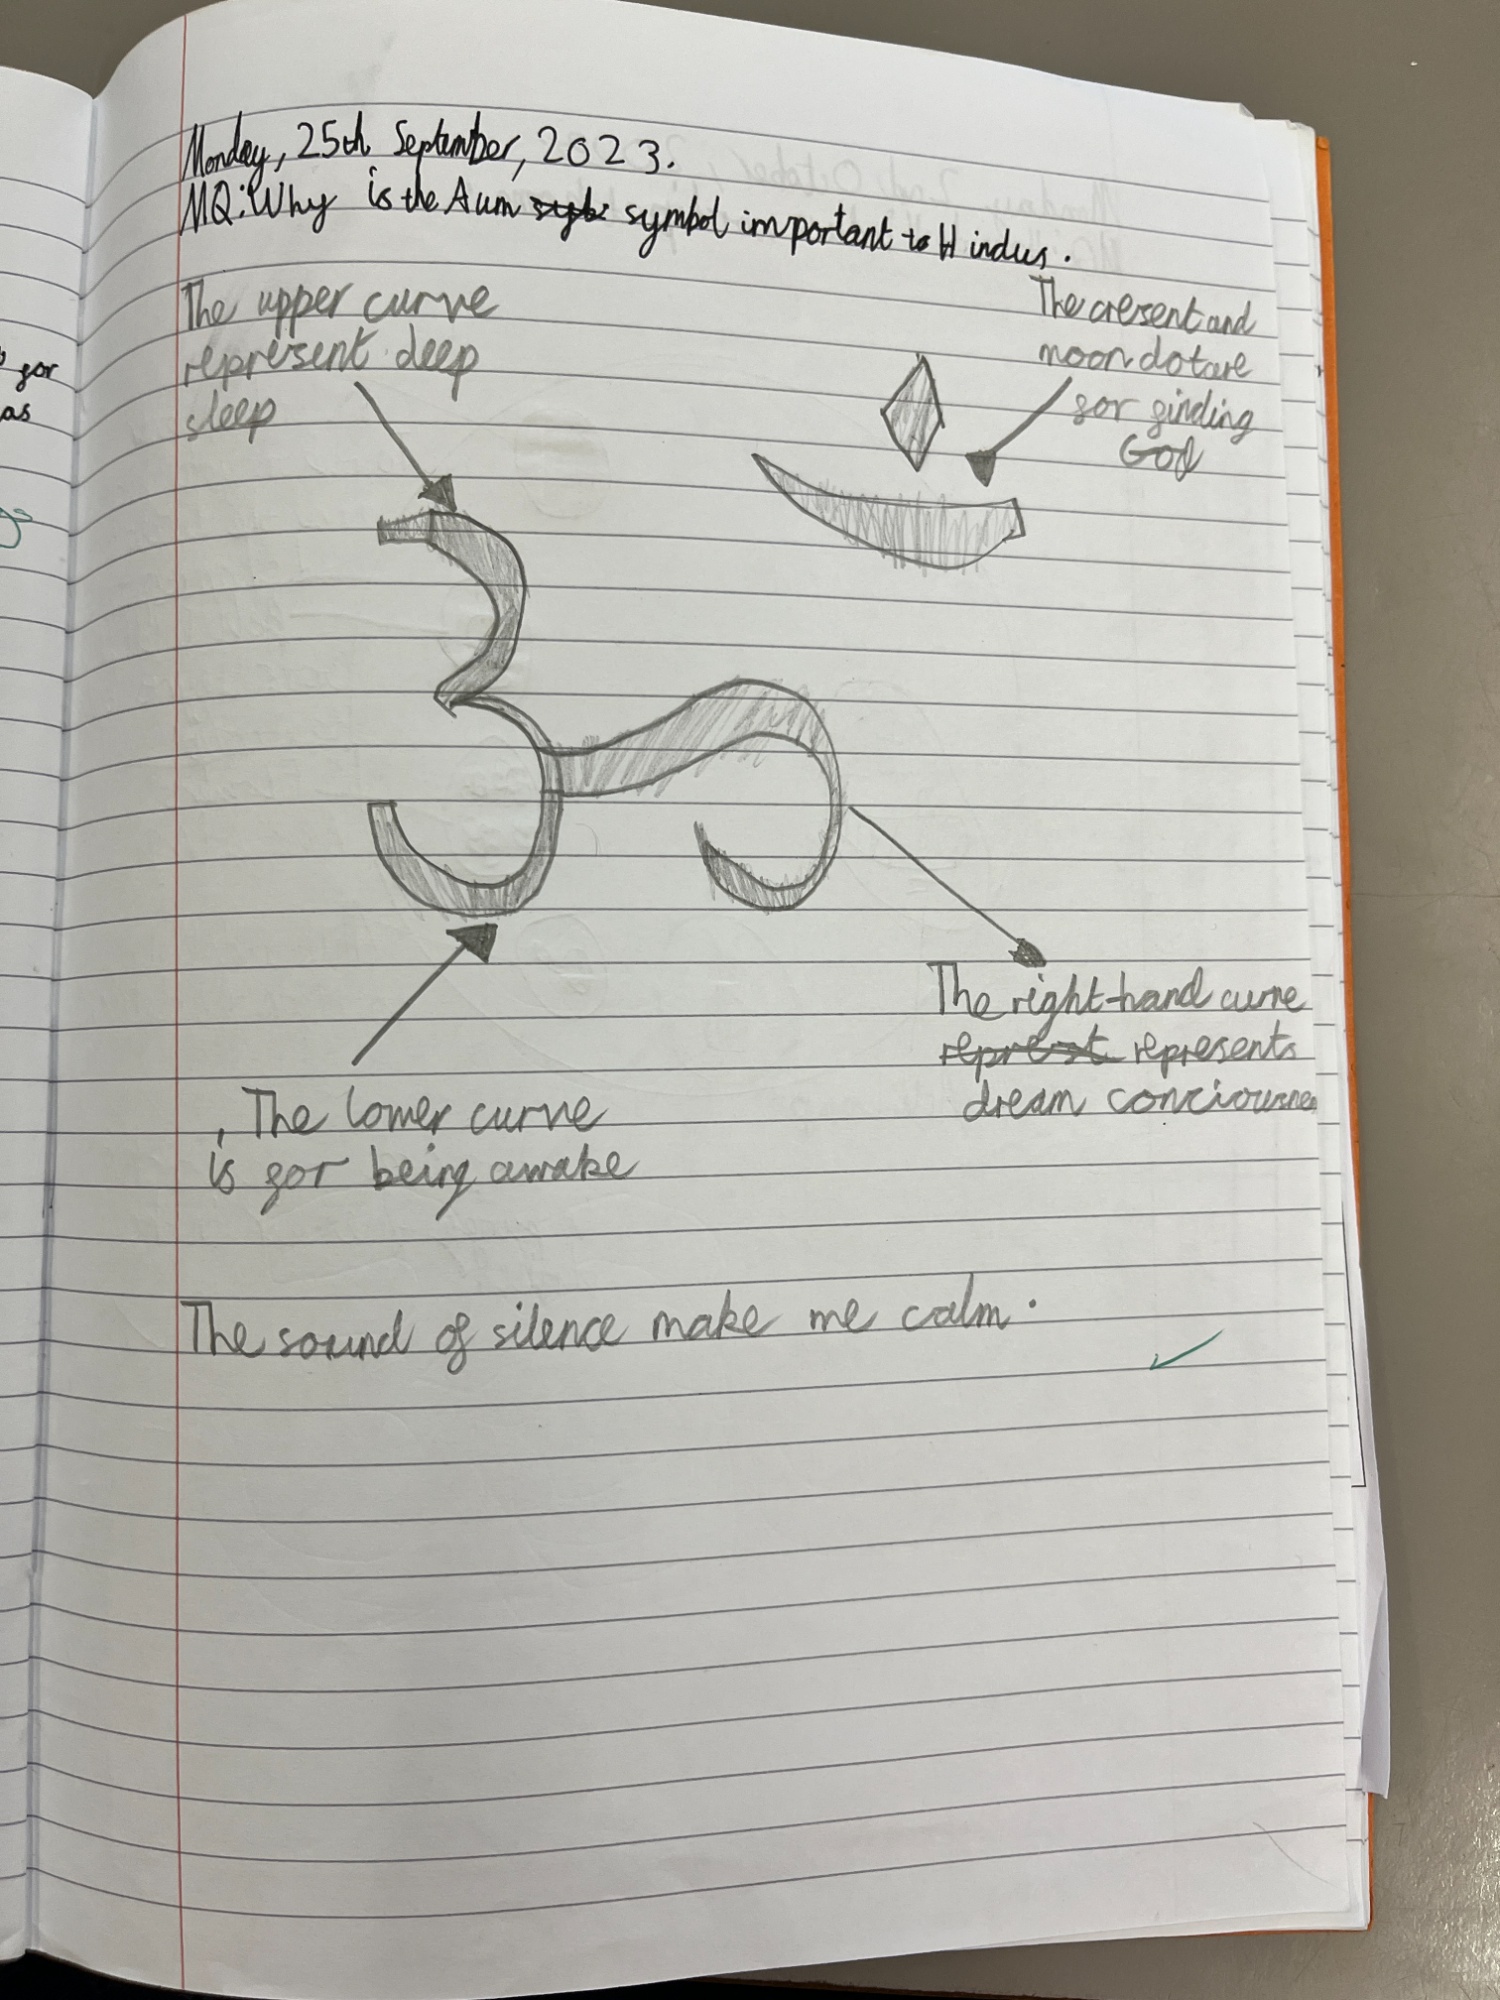 Monday, 25th September, 2023.
MQ: Why is the Aum symbol important to Hindus.
The upper curve
represent deep
sleep
The cresent and
moon dot are
for finding
God
The right-hand curve
represents
dream conciousness
The lower curve
is for being awake
The sound of silence make me calm.
for
as